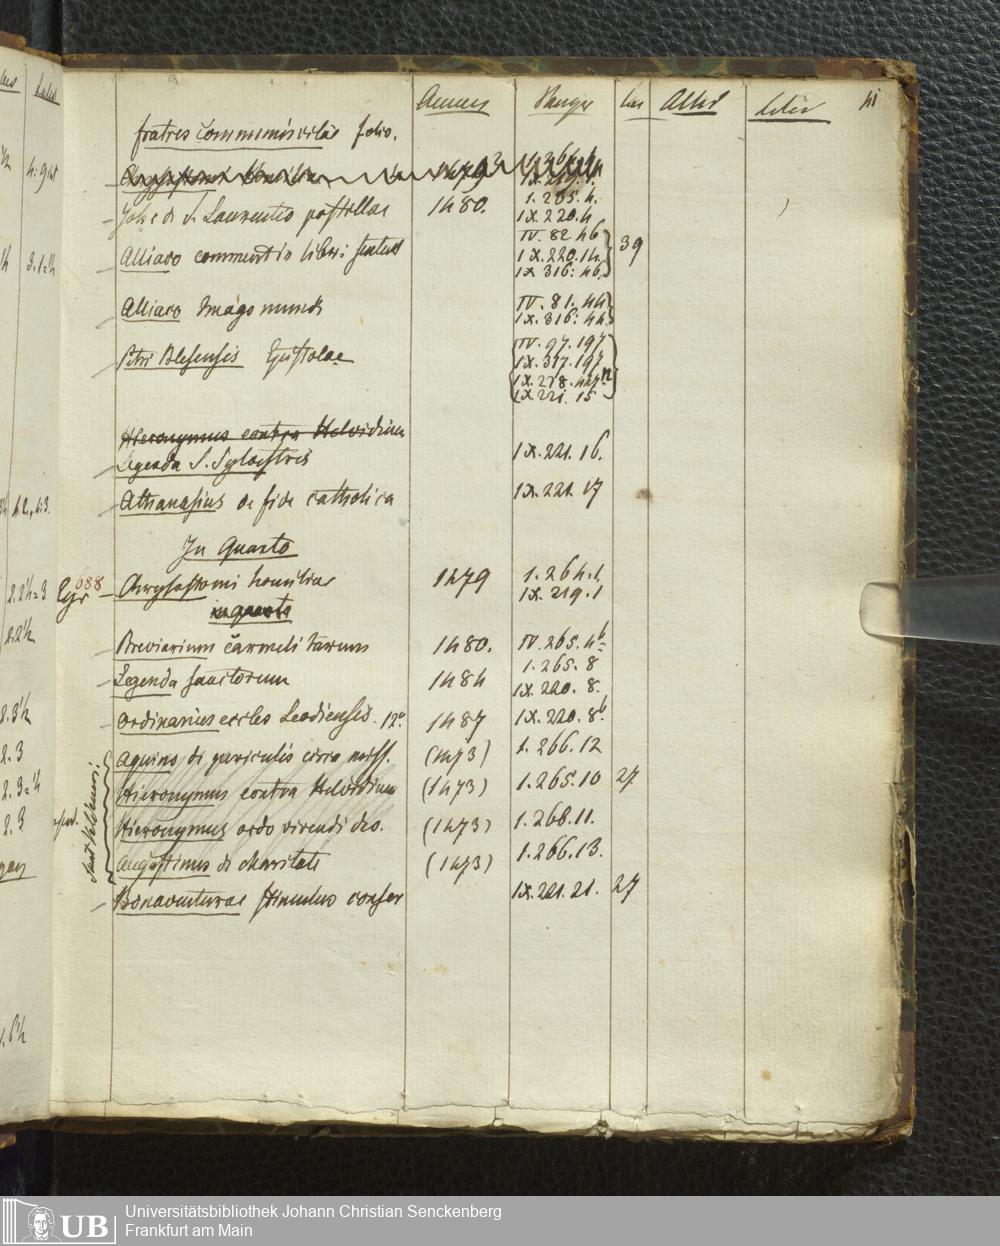 Annus Panzer Car Altit Liter
fratres Communis vitae folio.
Chrysostomi homiliae 1479
1. 264. 1.
IX. 219. 1.
Joh: d S. Laurentio postillae 1480. 1. 265. 4.
IX. 220. 4
Alliaco comment in libr: sentent IV. 82. 46
IX. 220. 14. 39
IX 316: 46.
Alliaco Imago mundi IV. 81. 44
IX. 316: 44
Petri Blesensis Epistolae IV. 97. 197
IX. 317. 197
IX. 221. 15
Hieronymus contra Helvidium
Legenda S. Sylvestris IX. 221. 16.
Athanasius de fide catholica IX. 221. 17
In Quarto
688
Chrysostomi homiliae 1479 1. 264. 1.
IX. 219. 1
in quarto
Breviarium Carmelitarum 1480. IV. 265. 4b
Legenda sanctorum 1484 1. 265. 8
IX. 220. 8.
Ordinarius eccles Leodiensis. 12o 1487 IX. 220. 8b.
Aquino di periculis circa miss. (1473) 1. 266. 12
Hieronymus contra Helvidium (1473) 1. 265. 10 27
Hieronymus ordo vivendi deo. (1473) 1. 268. 11.
Augustinus de charitate (1473) 1. 266. 13.
Bonaventurae stimulus conser IX. 221. 21. 27
UB
Universitätsbibliothek Johann Christian Senckenberg
Frankfurt am Main